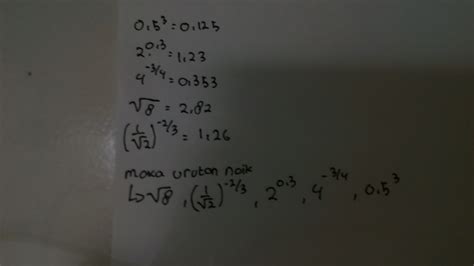 0,5³ = 0,125
2^0,3 = 1,23
4^-3/4 = 0,353
√8 = 2,82
(1/√2)^-2/3 = 1,26
maka urutan naik
↳ √8, (1/√2)^-2/3, 2^0,3, 4^-3/4, 0,5³